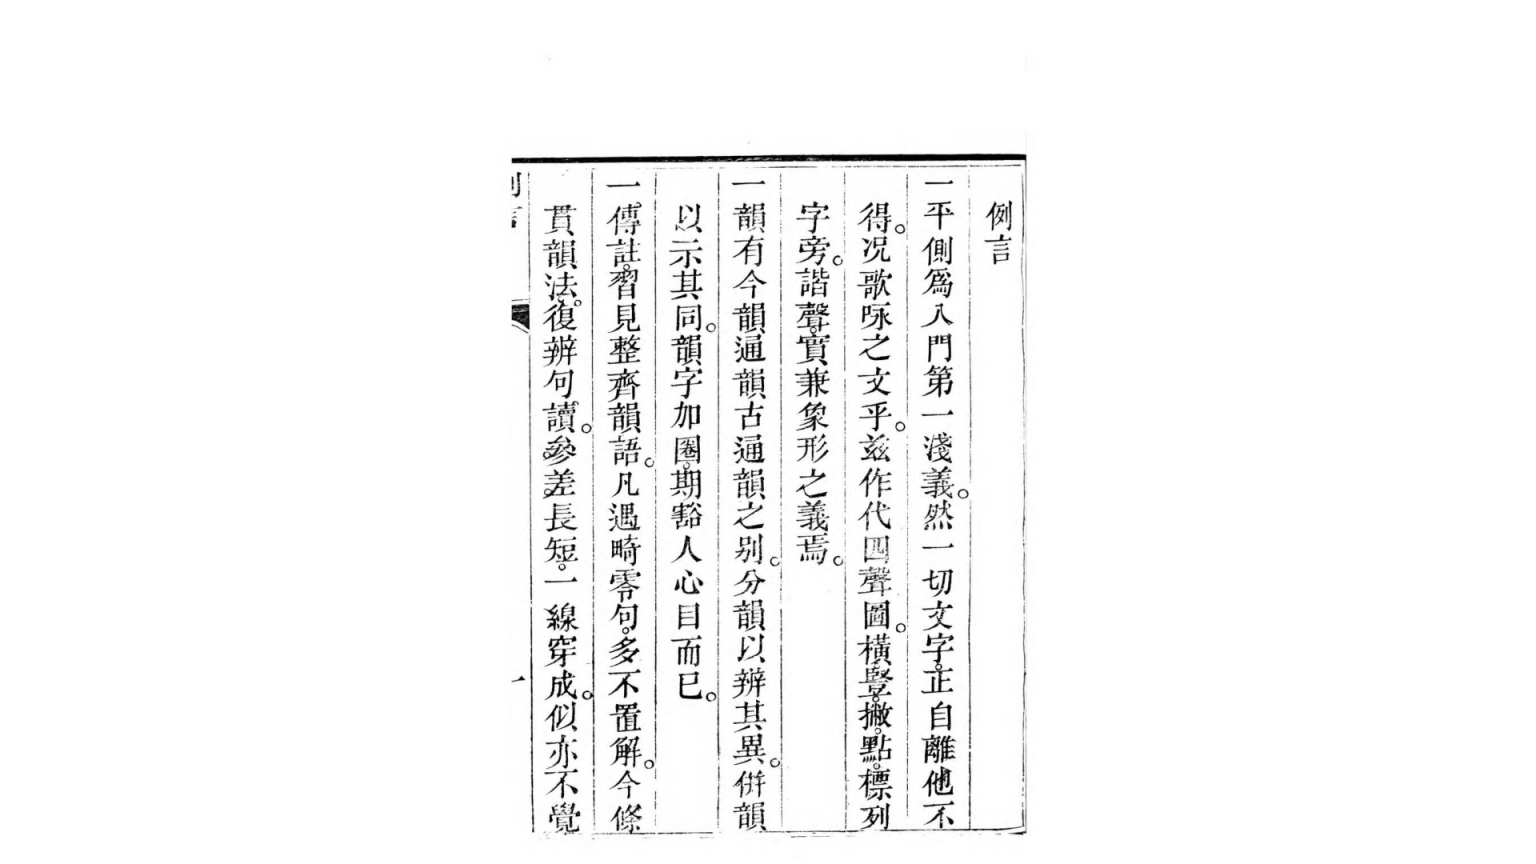 例言
一平側爲入門第一淺義。然一切文字。正自離他不
得。况歌咏之文乎。玆作代四聲圖。橫豎。撇。點。標列
字旁。諧聲。實兼象形之義焉。
一韻有今韻通韻古通韻之別。分韻以辨其異。倂韻
以示其同。韻字加圈。期豁人心目而已。
一傳註。習見整齊韻語。凡遇畸零句。多不置解。今條
貫韻法。復辨句讀。參差。長短。一線穿成。似亦不覺
例言
一